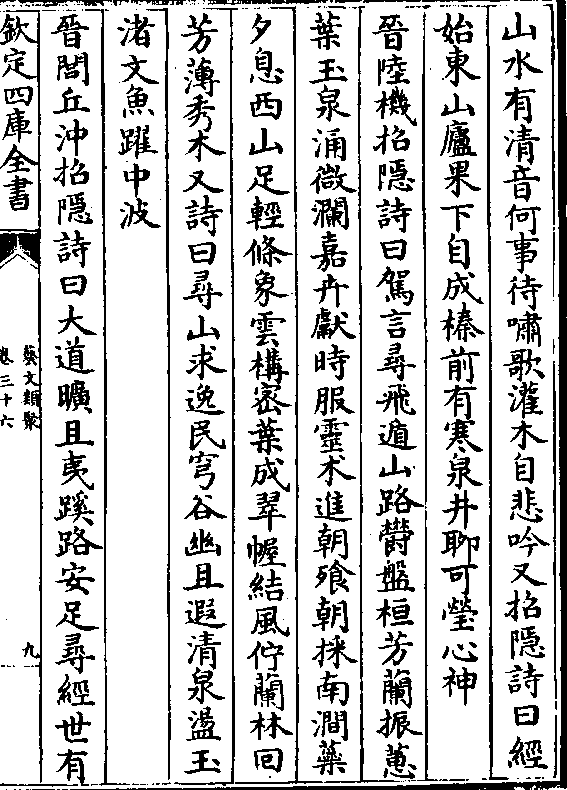 山水有清音何事待嘯歌灌木自悲吟又招隠詩曰經
始東山廬果下自成榛前有寒泉井聊可瑩心神
晉陸機招隠詩曰駕言尋飛遁山路欝盤桓芳蘭振蕙
葉玉泉涌微瀾嘉卉獻時服靈术進朝飱朝採南澗藻
夕息西山足輕條象雲構宻葉成翠幄結風佇蘭林回
芳薄秀木又詩曰尋山求逸民穹谷幽且遐清泉盪玉
渚文魚躍中波
晉閭丘沖招隠詩曰大道曠且夷蹊路安足尋經世有
欽定四庫全書
藝文類聚
卷三十六
九